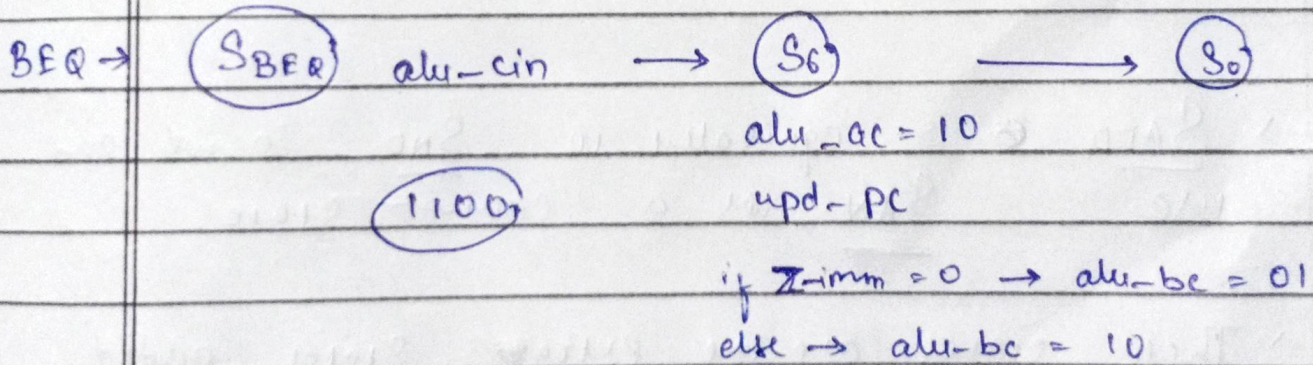 BEQ → SBEQ alu-cin → S6 → S0
alu-ac = 10
1100 upd-PC
if Z-imm = 0 → alu-bc = 01
else → alu-bc = 10